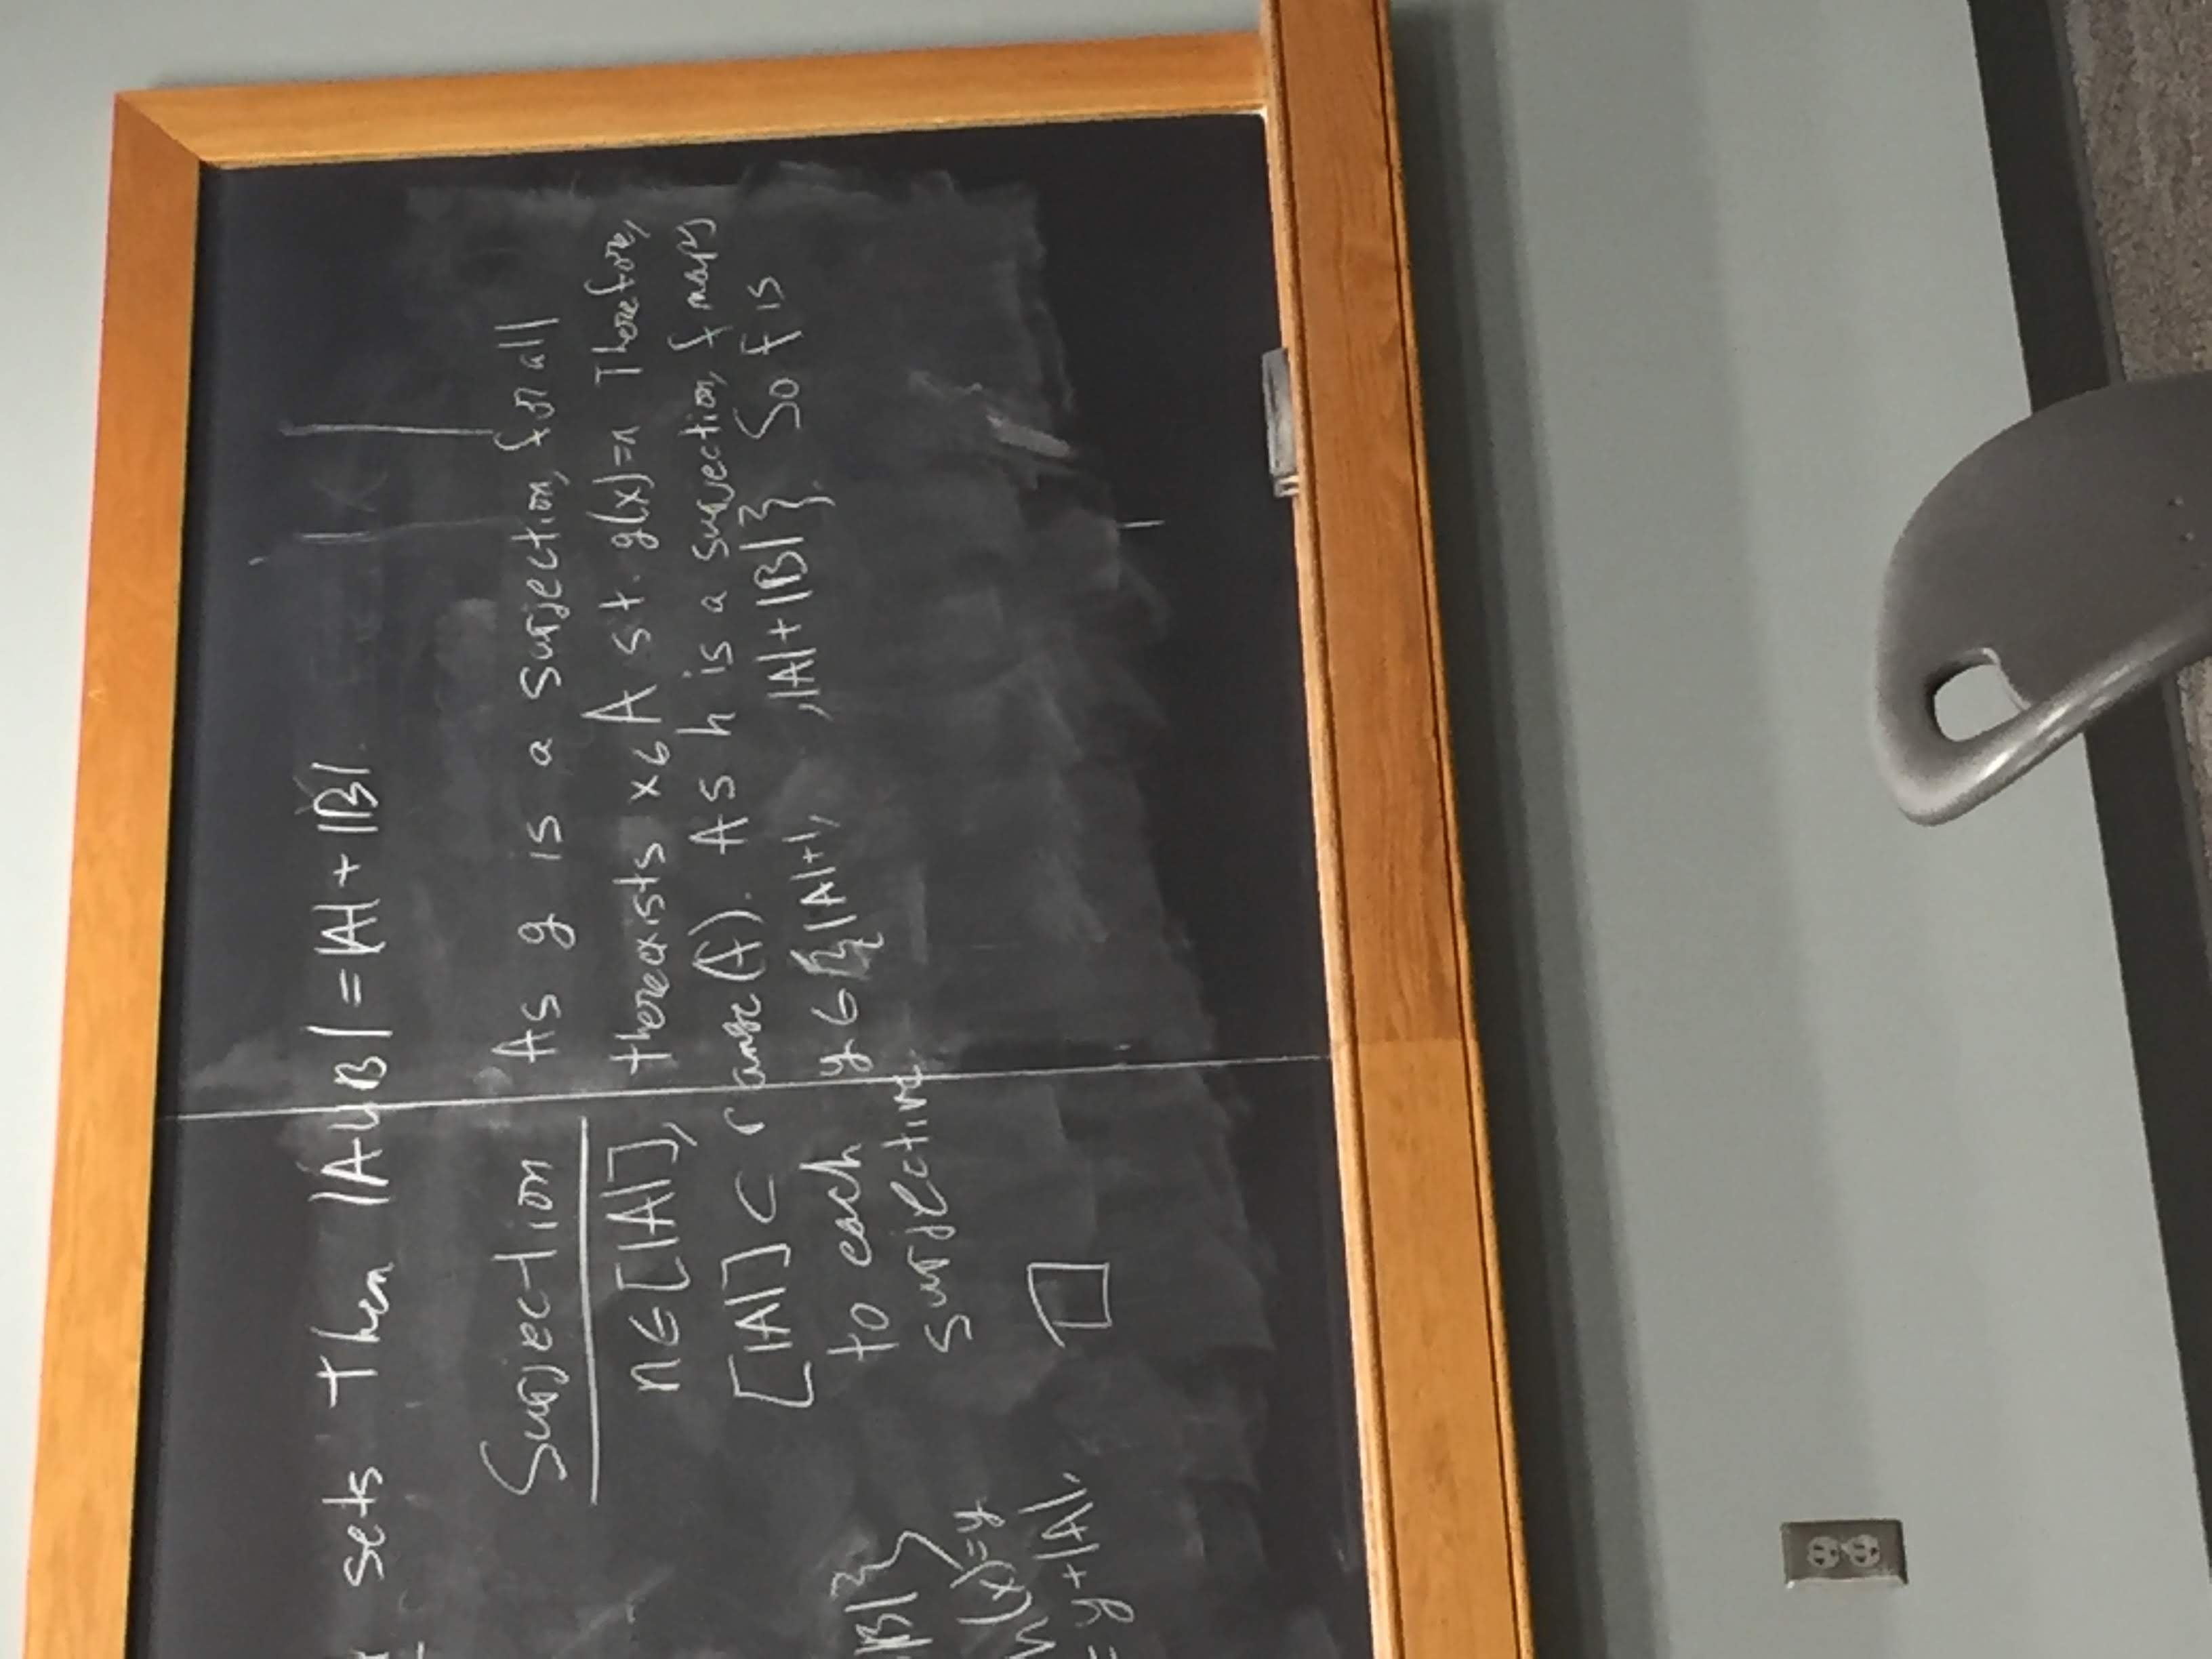 sets Then |A∪B| = |A| + |B|.
Surjection As g is a surjection, for all
n∈[|A|], there exists x∈A s.t. g(x)=n Therefore,
[|A|] ⊂ range(f). As h is a surjection, f maps
to each y∈{|A|+1, ,|A|+|B|}. So f is
surjective.
|B|}
h(x)=y
= y+|A|.
□